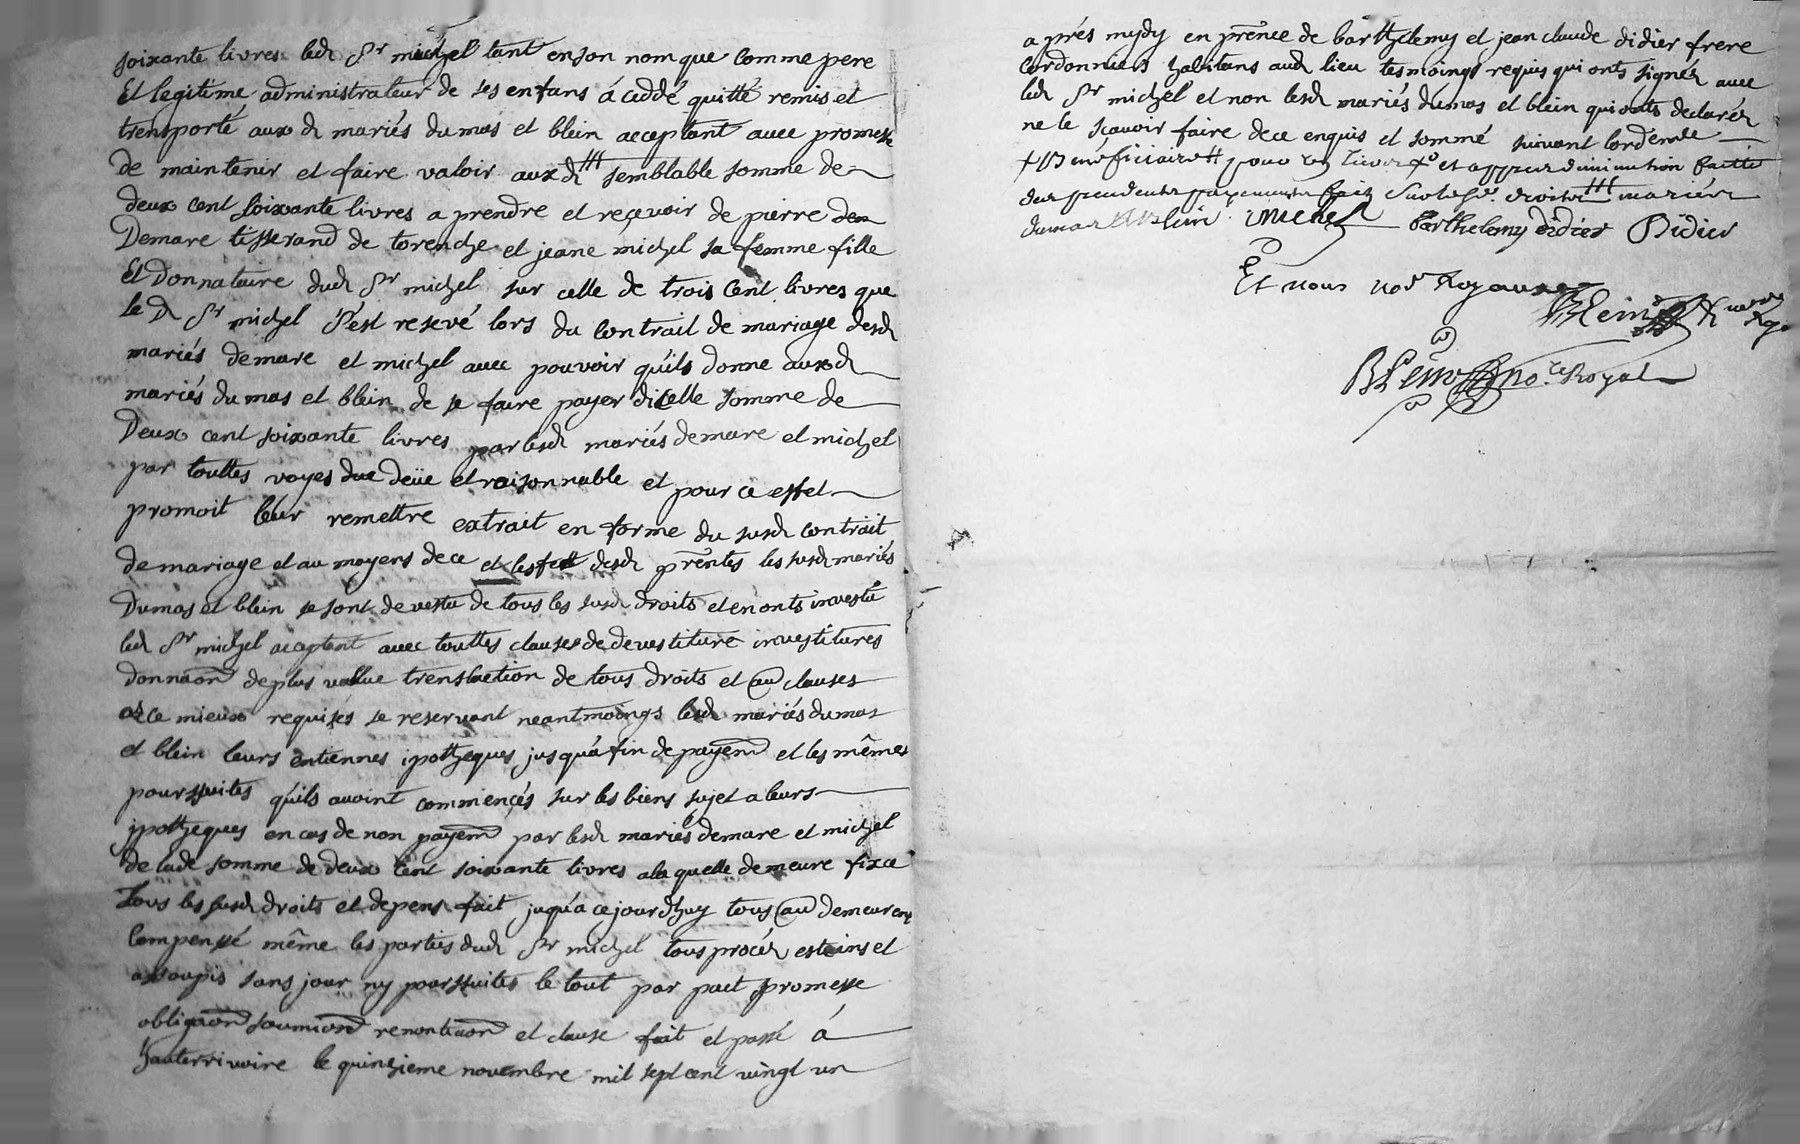 soixante livres led Sr michel tant en son nom que comme pere
Et legitime administrateur de ses enfans á ceddé quitté remis et
trensporté aux d mariés dumas et blein acceptant avec promesse
de maintenir et faire valoir aux d semblable somme de
deux cent soixante livres a prendre et reçevoir de pierre
Demare tisserand de torenche et jeane michel sa femme fille
Et Donnataire dud Sr michel sur celle de trois Cent livres que
le D Sr michel S'est resevé lors du Contrait de mariage desd
mariés demare et michel avec pouvoir qu'ils donne auxd
mariés dumas et blein de se faire payer dicelle somme de
Deux cent soixante livres par lesd mariés demare et michel
par touttes voyes due deüe et raisonnable et pour ce effet
promoit leur remettre extrait en forme du susd contrait
de mariage et au moyens de ce et desd prēntes les susd mariés
Dumas et blein se sont devestu de tous les susd droits et en onts investu
led Sr michel aceptent avec touttes clauses de devestiture investitures
donnaon de plus vallue trenslaction de tous droits et au clauses
a ce mieux requises se reservant neantmoings lesd mariés dumas
et blein leurs entiennes ipotheques jusqu'a fin de payem et les mêmes
pourssuites qu'ils avoint commençés sur les biens sujet a leurs
jpotheques en cas de non payem par lesd mariés demare et michel
de lade somme de deux Cent soixante livres a la quelle demeure fixce
Tous les susd droits et depens fait juqu'a ce jourdhuy tous au demeurent
Compenssé même les parties dud Sr michel tous procés esteins et
assoupis sans jour ny pourssuites le tout par pact promesse
obligaon soumion renontiaon et clause fait et passé á
hauterrivoire le quinzieme novembre mil sept cent vingt un
a prés mydy en prēnce de barthelemy et jean claude didier frere
Cordonniers habitans aud lieu tesmoings requis qui onts signés avec
led Sr michel et non lesd mariés dumas et blein qui onts declarés
ne le scavoir faire de ce enquis et sommé suivant lordence
+ Béneficiaire et diminution faitte
des precedents payements fait droits mariés
dumas blein Michel Barthelemy didier Didier
Et nous nore Royaux
Blein
Blein nore Royal